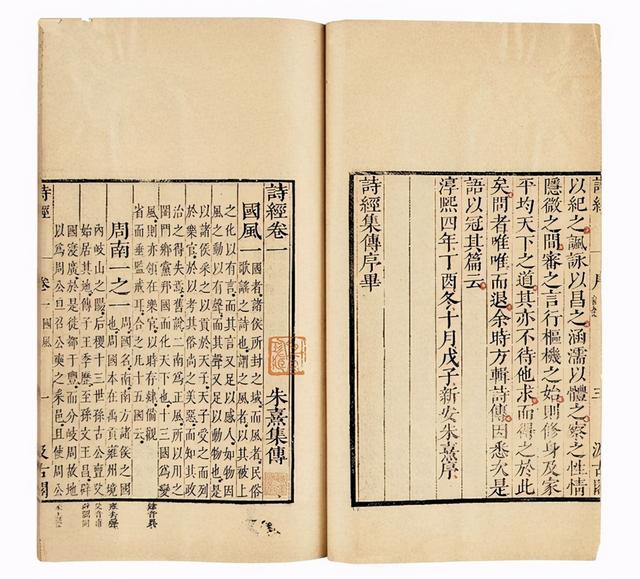 以紀之諷詠以昌之涵濡以體之察之性情
隱微之間審之言行樞機之始則修身及家
平均天下之道其亦不待他求而得之於此
矣問者唯唯而退余時方輯詩傳因悉次是
語以冠其篇云
淳熙四年丁酉冬十月戊子新安朱熹序
詩經集傳序畢
詩經卷一 朱熹集傳
國風一 國者諸侯所封之域而風者民俗
歌謠之詩也謂之風者以其被上
之化以有言而其言又足以感人如物因
風之動以有聲而其聲又足以動物也是
以諸侯采之以貢於天子天子受之而列
於樂官於以考其俗尚之美惡而知其政
治之得失焉舊說二南為正風所以用之
閨門鄉黨邦國而化天下也十三國為變
風則亦領在樂官以時存肄備觀
省而垂監戒耳合之凡十五國云
周南一之一 周國名南南方諸侯之國
也周國本在禹貢雍州境
內岐山之陽后稷十三世孫古公亶父
始居其地傳子王季歷至孫文王昌辟
國寖廣於是徙都于豐而分岐周故地
以為周公旦召公奭之采邑且使周公
肄音異
詩經 卷一 國風 一 汲古閣